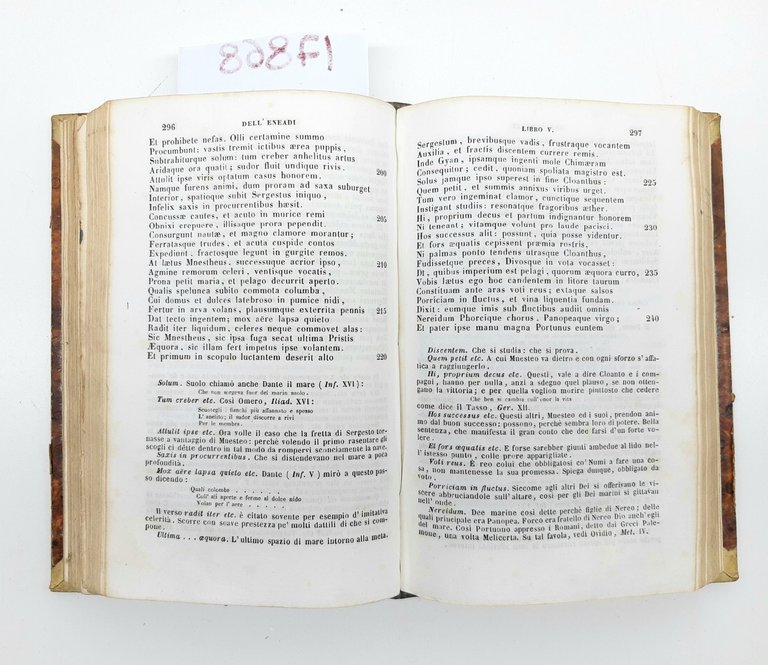 828F1
296 DELL' ENEADI
Et prohibete nefas. Olli certamine summo
Procumbunt: vastis tremit ictibus ærea puppis,
Subtrahiturque solum: tum creber anhelitus artus
Aridaque ora quatit; sudor fluit undique rivis.
Attulit ipse viris optatum casus honorem. 200
Namque furens animi, dum proram ad saxa suburget
Interior, spatioque subit Sergestus iniquo,
Infelix saxis in procurrentibus hæsit.
Concussæ cautes, et acuto in murice remi
Obnixi crepuere, illisaque prora pependit. 205
Consurgunt nautæ, et magno clamore morantur;
Ferratasque trudes, et acuta cuspide contos
Expediunt, fractosque legunt in gurgite remos.
At lætus Mnestheus, successuque acrior ipso, 210
Agmine remorum celeri, ventisque vocatis,
Prona petit maria, et pelago decurrit aperto.
Qualis spelunca subito commota columba,
Cui domus et dulces latebroso in pumice nidi,
Fertur in arva volans, plausumque exterrita pennis 215
Dat tecto ingentem; mox aëre lapsa quieto
Radit iter liquidum, celeres neque commovet alas:
Sic Mnestheus, sic ipsa fuga secat ultima Pristis
Æquora, sic illam fert impetus ipse volantem.
Et primum in scopulo luctantem deserit alto 220
Solum. Suolo chiamò anche Dante il mare (Inf. XVI):
Che non sregava fuor dei marin suolo.
Tum creber etc. Così Omero, Iliad. XVI:
Scuotegli i fianchi più affannato e spesso
L'anelito; il sudor discorre a rivi
Per le membra.
Attulit ipse etc. Ora volle il caso che la fretta di Sergesto tor-
nasse a vantaggio di Mnesteo: perchè volendo il primo rasentare gli
scogli ci dette dentro in tal modo da rompervi sconciamente la nave.
Saxis in procurrentibus. Che si distendevano nel mare a poca
profondità.
Mox aëre lapsa quieto etc. Dante (Inf. V) mirò a questo pas-
so dicendo:
Quali colombe . . . . . .
Coll' ali aperte e ferme al dolce nido
Volan per l'aere . . . . .
Il verso radit iter etc. è citato sovente per esempio d'imitativa
celerità. Scorre con soave prestezza pe' molti dattili di che si com-
pone.
Ultima ... æquora. L'ultimo spazio di mare intorno alla meta.
LIBRO V. 297
Sergestum, brevibusque vadis, frustraque vocantem
Auxilia, et fractis discentem currere remis.
Inde Gyan, ipsamque ingenti mole Chimæram
Consequitur; cedit, quoniam spoliata magistro est.
Solus jamque ipso superest in fine Cloanthus: 225
Quem petit, et summis annixus viribus urget.
Tum vero ingeminat clamor, cunctique sequentem
Instigant studiis: resonatque fragoribus æther.
Hi, proprium decus et partum indignantur honorem
Ni teneant; vitamque volunt pro laude pacisci. 230
Hos successus alit: possunt, quia posse videntur.
Et fors æquatis cepissent præmia rostris,
Ni palmas ponto tendens utrasque Cloanthus,
Fudissetque preces, Divosque in vota vocasset:
Dî, quibus imperium est pelagi, quorum æquora curro, 235
Vobis lætus ego hoc candentem in litore taurum
Constituam ante aras voti reus; extaque salsos
Porriciam in fluctus, et vina liquentia fundam.
Dixit: eumque imis sub fluctibus audiit omnis
Nereidum Phorcique chorus, Panopeaque virgo; 240
Et pater ipse manu magna Portunus euntem
Discentem. Che si studia: che si prova.
Quem petit etc. A cui Mnesteo va dietro e con ogni sforzo s'affa-
tica a raggiungerlo.
Hi, proprium decus etc. Questi, vale a dire Cloanto e i com-
pagni, hanno per nulla, anzi a sdegno quel plauso, se non otten-
gono la vittoria; e per quella voglion morire piuttosto che cedere
Che ben si cambia coll'onor la vita
come dice il Tasso, Ger. XII.
Hos successus etc. Questi altri, Mnesteo ed i suoi, prendon animo
dal buon successo; possono, perchè sembra loro di potere. Bella
sentenza, che manifesta il gran conto che dee farsi d'un forte vo-
lere.
Et fors æquatis etc. E forse sarebber giunti ambedue al lido nel-
l'istesso punto, colle prore appareggiate.
Voti reus. È reo colui che obbligatosi co' Numi a fare una co-
sa, non mantenesse la sua promessa. Spiega dunque, obbligato da
voto.
Porriciam in fluctus. Siccome agli altri Dei si offerivano le vi-
scere abbruciandole sull'altare, così per gli Dei marini si gittavan
nell'onde.
Nereidum. Dee marine così dette perchè figlie di Nereo; delle
quali principale era Panopea. Forco era fratello di Nereo Dio anch'egli
del mare. Così Portuno appresso i Romani, detto dai Greci Pale-
mone, una volta Melicerta. Su tal favola, vedi Ovidio, Met. IV.